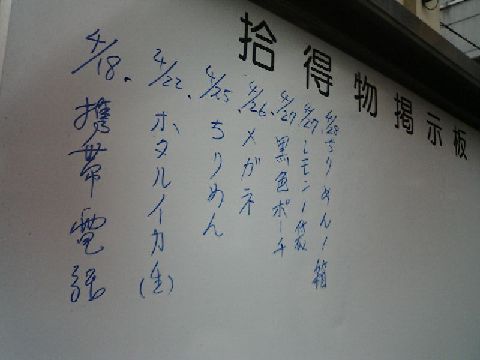 拾得物掲示板
4/28 ちりめん1箱
4/27 レモン1袋
4/27 黒色ポーチ
4/26 メガネ
4/25 ちりめん
4/22 ホタルイカ(生)
4/18 携帯電話